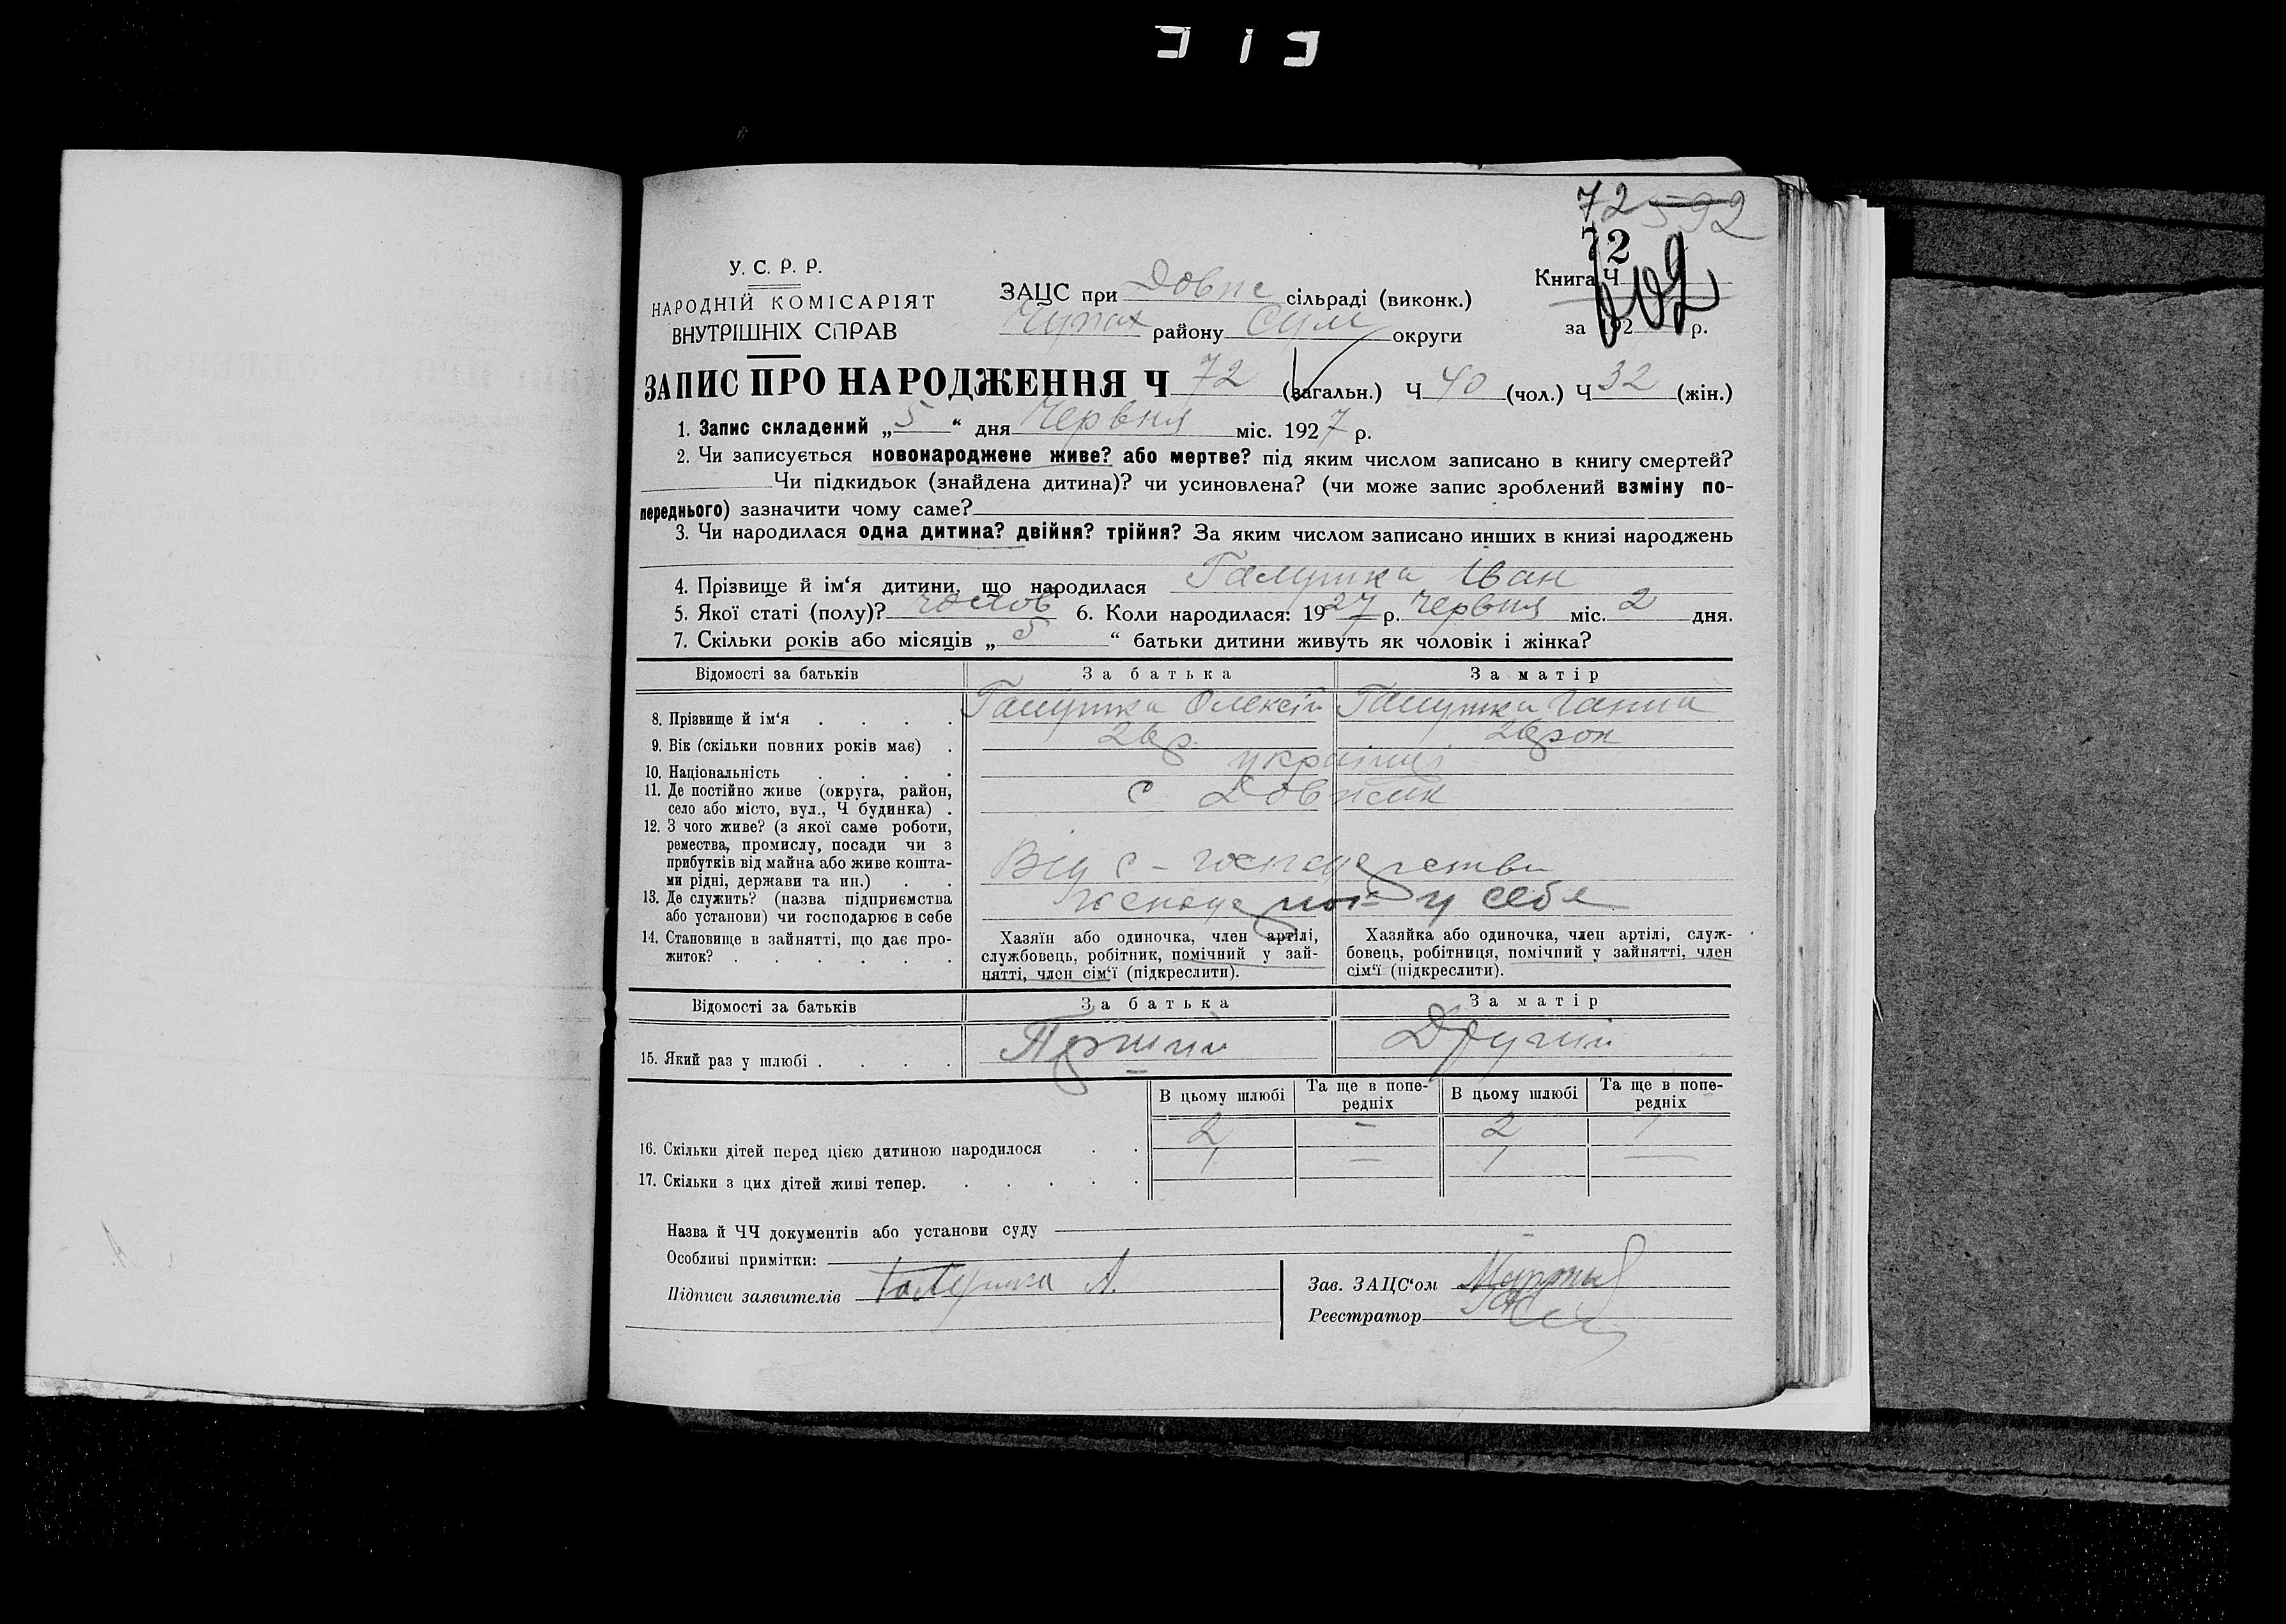 72 592
72
У. С. Р. Р.
НАРОДНІЙ КОМІСАРІЯТ
ВНУТРІШНІХ СПРАВ
ЗАЦС при Довж сільраді (виконк.)
Чупах району Сум округи
Книга Ч
за 192 р.
ЗАПИС ПРО НАРОДЖЕННЯ Ч 72 (загальн.) Ч 40 (чол.) Ч 32 (жін.)
1. Запис складений „ 5 “ дня Червня міс. 1927 р.
2. Чи записується новонароджене живе? або мертве? під яким числом записано в книгу смертей?
Чи підкидьок (знайдена дитина)? чи усиновлена? (чи може запис зроблений взміну по-
переднього) зазначити чому саме?
3. Чи народилася одна дитина? двійня? трійня? За яким числом записано инших в книзі народжень
4. Прізвище й ім‘я дитини, що народилася Галушка Іван
5. Якої статі (полу)? чолов 6. Коли народилася: 1927 р. Червня міс. 2 дня.
7. Скільки років або місяців „ 5 “ батьки дитини живуть як чоловік і жінка?
Відомості за батьків За батька За матір
8. Прізвище й ім‘я . . . . Галушка Олексій Галушка Ганна
9. Вік (скільки повних років має) . 26 р. 26 рок
10. Національність . . . . україніці
11. Де постійно живе (округа, район,
село або місто, вул., Ч будинка) . с Довжик
12. З чого живе? (з якої саме роботи,
ремества, промислу, посади чи з
прибутків від майна або живе кошта-
ми рідні, держави та ин.) . . Від с-господарства
13. Де служить? (назва підприємства
або установи) чи господарює в себе у себе
14. Становище в зайнятті, що дає про-
житок? . . . . . .
Хазяїн або одиночка, член артілі,
службовець, робітник, помічний у зай-
нятті, член сім‘ї (підкреслити).
Хазяйка або одиночка, член артілі, служ-
бовець, робітниця, помічний у зайнятті, член
сім‘ї (підкреслити).
Відомості за батьків За батька За матір
15. Який раз у шлюбі . . . . Перший Другий
В цьому шлюбі Та ще в попе-
редніх В цьому шлюбі Та ще в попе-
редніх
16. Скільки дітей перед цією дитиною народилося . . 2 - 2 1
17. Скільки з цих дітей живі тепер. . . . . . 1 — 1 —
Назва й ЧЧ документів або установи суду
Особливі примітки:
Підписи заявителів Галушка А.
Зав. ЗАЦС‘ом
Реєстратор